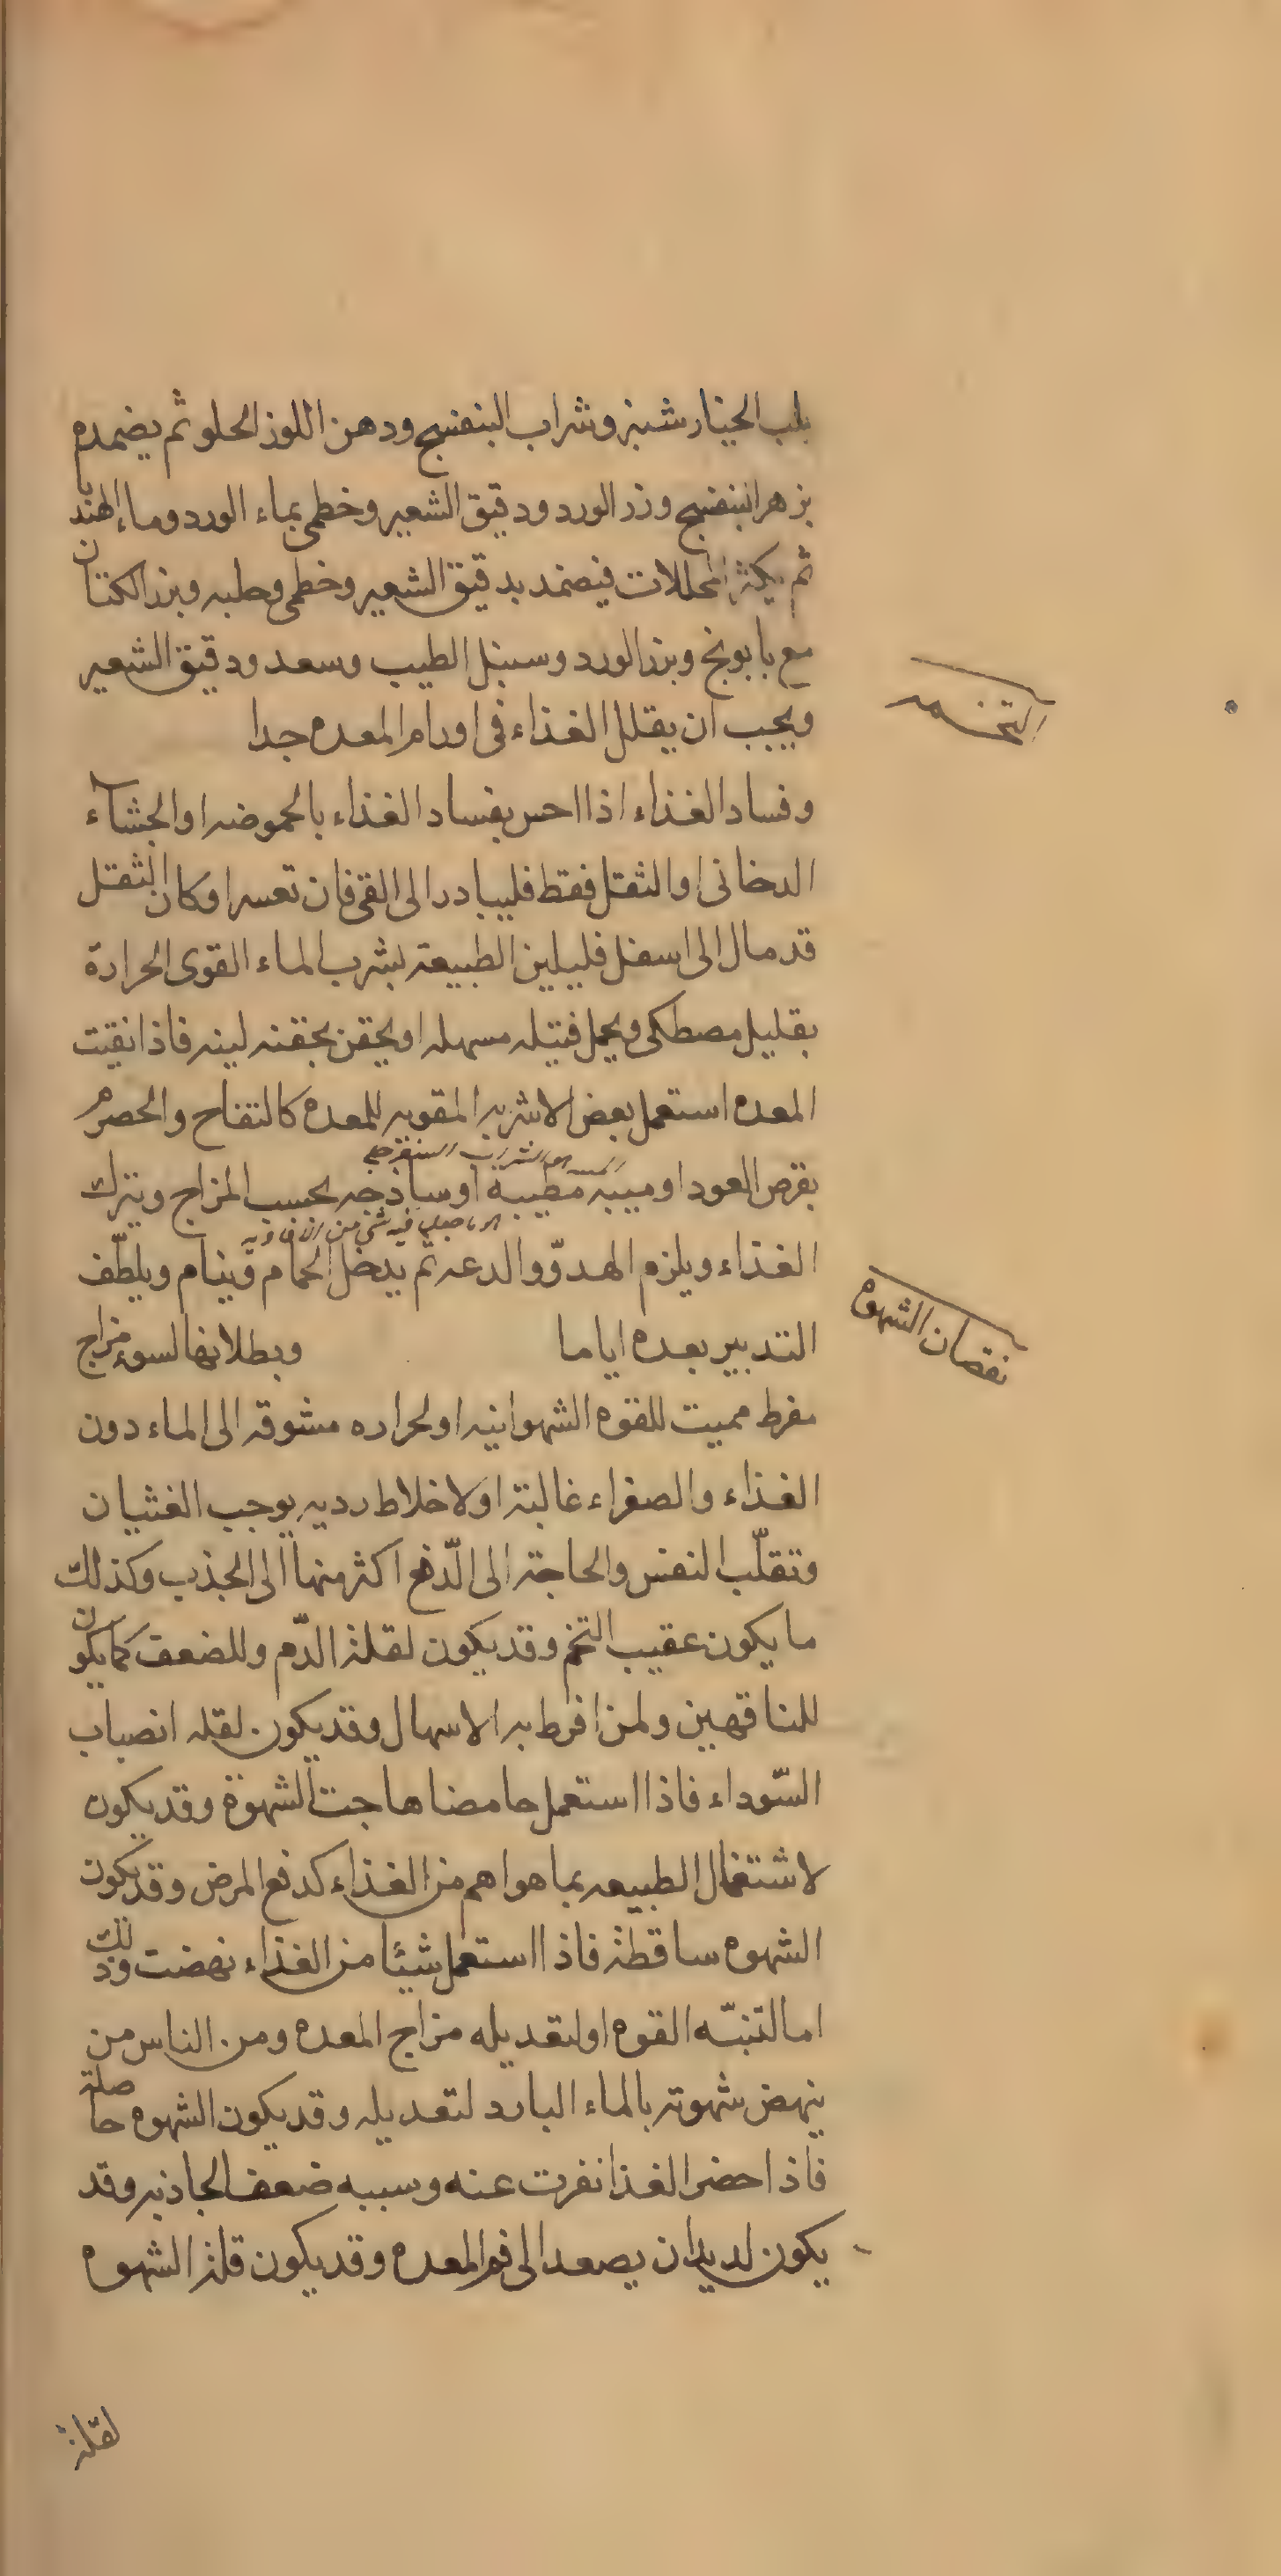 بلب الخيار شنبر وشراب البنفسج ودهن اللوز الحلو ثم يضمده
بزهر البنفسج وزر الورد ودقيق الشعير وخطمى بماء الورد وماء الهندبا
ثم يكثر المحللات فيضمد بدقيق الشعير وخطمى وحلبه وبزر الكتان
مع بابونج وبزر الورد وسنبل الطيب وسعد ودقيق الشعير
التخمه
ويجب ان يقلل الغذاء فى اورام المعده جدا
وفساد الغذاء اذا احس بفساد الغذاء بالحموضه او الجشاء
الدخانى او الثقل فقط فليبادر الى القى فان تعسر او كان الثقل
قد مال الى اسفل فليلين الطبيعة بشرب الماء القوى الحرارة
بقليل مصطكى ويحمل فتيله مسهله او يحقن بحقنه لينه فاذا نقيت
المعده استعمل بعض الاشربه المقويه للمعده كالتفاح والحصرم
بقرص العود او ميبه مطيبة او ساذجه بحسب المزاج ويترك
الغذاء ويلزم الهدوّ والدعه ثم يدخل الحمام وينام ويلطّف
نقصان الشهوه
التدبير بعده اياما وبطلانها لسوء مزاج
مفرط مميت للقوه الشهوانيه او لحراره مشوقه الى الماء دون
الغذاء والصفراء غالبة او لاخلاط رديه يوجب الغثيان
وتقلّب النفس والحاجة الى الدّفع اكثر منها الى الجذب وكذلك
ما يكون عقيب التخم وقد يكون لقلة الدّم وللضعف كما يكون
للناقهين ولمن افرط به الاسهال وقد يكون لقله انصباب
السّوداء فاذا استعمل حامضا هاجت الشهوة وقد يكون
لاشتغال الطبيعه بما هو اهم من الغذاء كدفع المرض وقد يكون
الشهوه ساقطة فاذا استعمل شيئا من الغذاء نهضت وذلك
اما لتنبّه القوه او لتعديله مزاج المعده ومن الناس من
ينهض شهوته بالماء البارد لتعديله وقد يكون الشهوه حاصلة
فاذا حضر الغذا نفرت عنه وسببه ضعف الجاذبه وقد
يكون لديدان يصعد الى فم المعده وقد يكون قلة الشهوه
لقلة